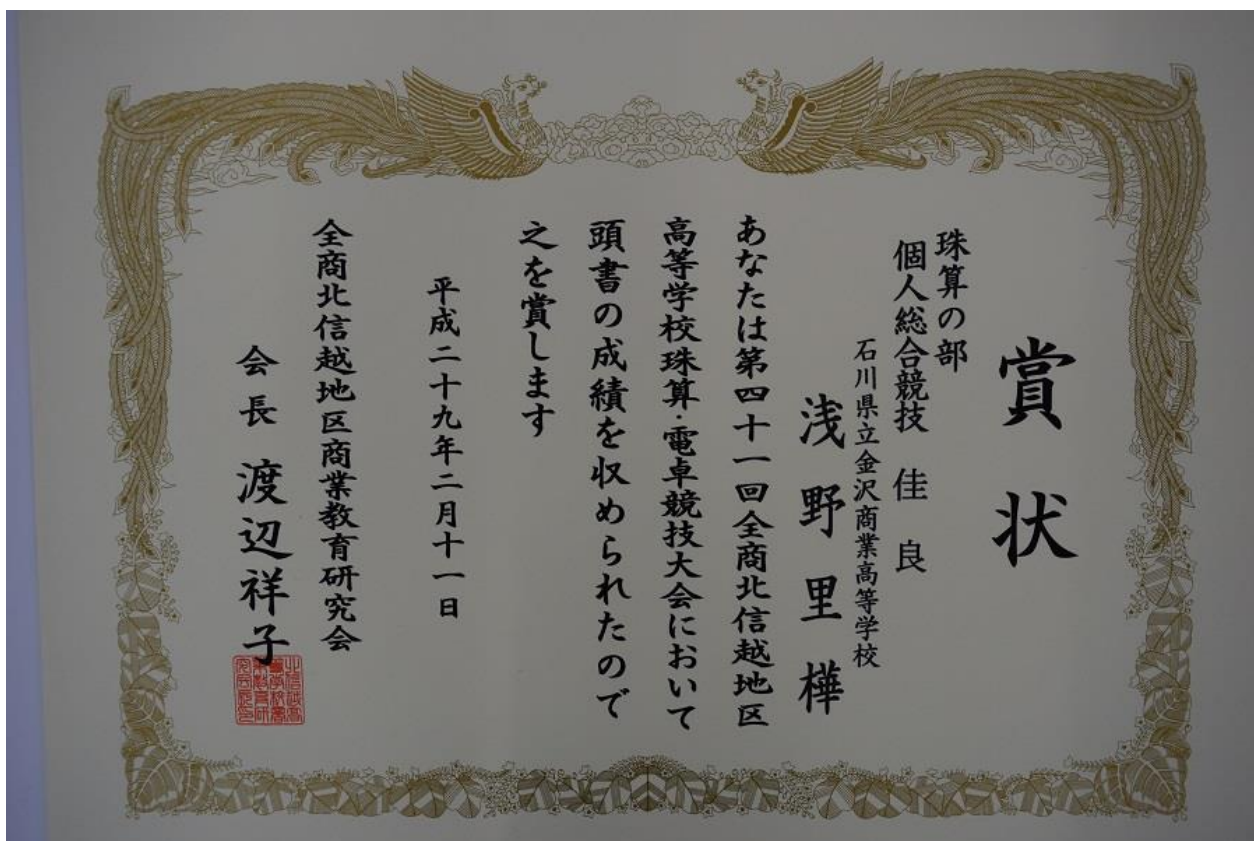 賞状
珠算の部
個人総合競技 佳良
石川県立金沢商業高等学校
浅野里樺
あなたは第四十一回全商北信越地区
高等学校珠算・電卓競技大会において
頭書の成績を収められたので
之を賞します
平成二十九年二月十一日
全商北信越地区商業教育研究会
会長 渡辺祥子